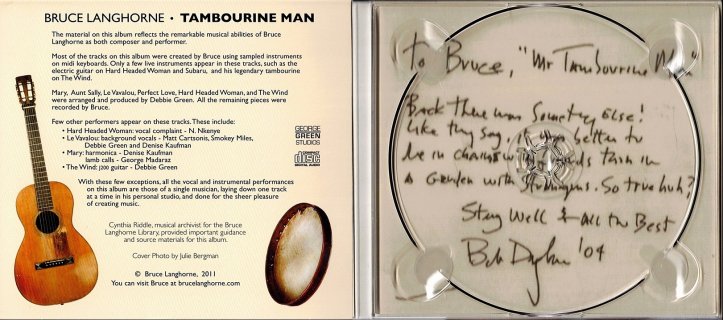 BRUCE LANGHORNE • TAMBOURINE MAN
The material on this album reflects the remarkable musical abilities of Bruce
Langhorne as both composer and performer.
Most of the tracks on this album were created by Bruce using sampled instruments
on midi keyboards. Only a few live instruments appear in these tracks, such as the
electric guitar on Hard Headed Woman and Subaru, and his legendary tambourine
on The Wind.
Mary, Aunt Sally, Le Vavalou, Perfect Love, Hard Headed Woman, and The Wind
were arranged and produced by Debbie Green. All the remaining pieces were
recorded by Bruce.
Few other performers appear on these tracks. These include:
• Hard Headed Woman: vocal complaint - N. Nkenye
• Le Vavalou: background vocals - Matt Cartsonis, Smokey Miles,
Debbie Green and Denise Kaufman
• Mary: harmonica - Denise Kaufman
lamb calls - George Madaraz
• The Wind: j200 guitar - Debbie Green
GEORGE
GREEN
STUDIOS
COMPACT
disc
DIGITAL AUDIO
With these few exceptions, all the vocal and instrumental performances
on this album are those of a single musician, laying down one track
at a time in his personal studio, and done for the sheer pleasure
of creating music.
Cynthia Riddle, musical archivist for the Bruce
Langhorne Library, provided important guidance
and source materials for this album.
Cover Photo by Julie Bergman
© Bruce Langhorne, 2011
You can visit Bruce at brucelanghorne.com
To Bruce, "Mr Tambourine Man"
Back there was Something Else!
Like they say, it was better to
be in chains with friends than in
a Garden with Strangers. So true huh?
Stay Well & All the Best
Bob Dylan '04